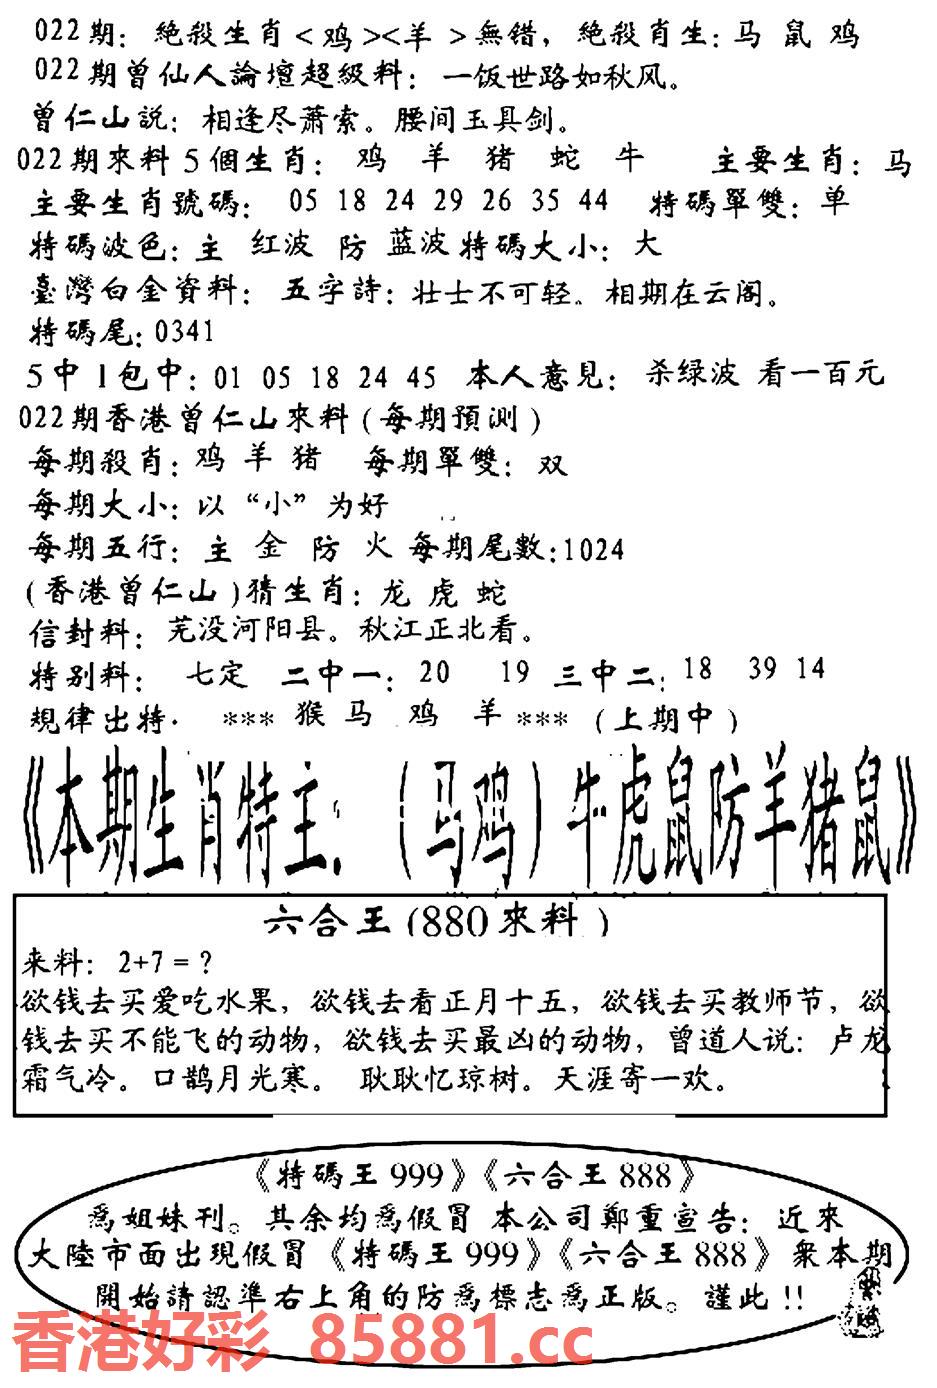 022期: 絶殺生肖<鸡><羊>無错, 絶殺肖生: 马 鼠 鸡
022期曾仙人論壇超級料: 一饭世路如秋风。
曾仁山説: 相逢尽萧索。腰间玉具剑。
022期來料5個生肖: 鸡 羊 猪 蛇 牛 主要生肖: 马
主要生肖號碼: 05 18 24 29 26 35 44 特碼單雙: 单
特碼波色: 主 红波 防 蓝波 特碼大小: 大
臺灣白金資料: 五字詩: 壮士不可轻。相期在云阁。
特碼尾: 0341
5中1包中: 01 05 18 24 45 本人意見: 杀绿波 看一百元
022期香港曾仁山來料(每期預测)
每期殺肖: 鸡 羊 猪 每期單雙: 双
每期大小: 以“小”为好
每期五行: 主 金 防 火 每期尾數:1024
(香港曾仁山)猜生肖: 龙 虎 蛇
信封料: 芜没河阳县。秋江正北看。
特别料: 七定 二中一: 20 19 三中二: 18 39 14
規律出特· *** 猴 马 鸡 羊 *** (上期中)
《本期生肖特主: (马鸡)牛虎鼠防羊猪鼠》
六合王(880來料)
来料: 2+7=?
欲钱去买爱吃水果, 欲钱去看正月十五, 欲钱去买教师节, 欲
钱去买不能飞的动物, 欲钱去买最凶的动物, 曾道人说: 卢龙
霜气冷。口鹊月光寒。 耿耿忆琼树。天涯寄一欢。
《特碼王999》《六合王888》
爲姐妹刊。其余均爲假冒 本公司鄭重宣告: 近來
大陸市面出現假冒《特碼王999》《六合王888》衆本期
開始請認準右上角的防爲標志爲正版。謹此!!
香港好彩 85881.cc